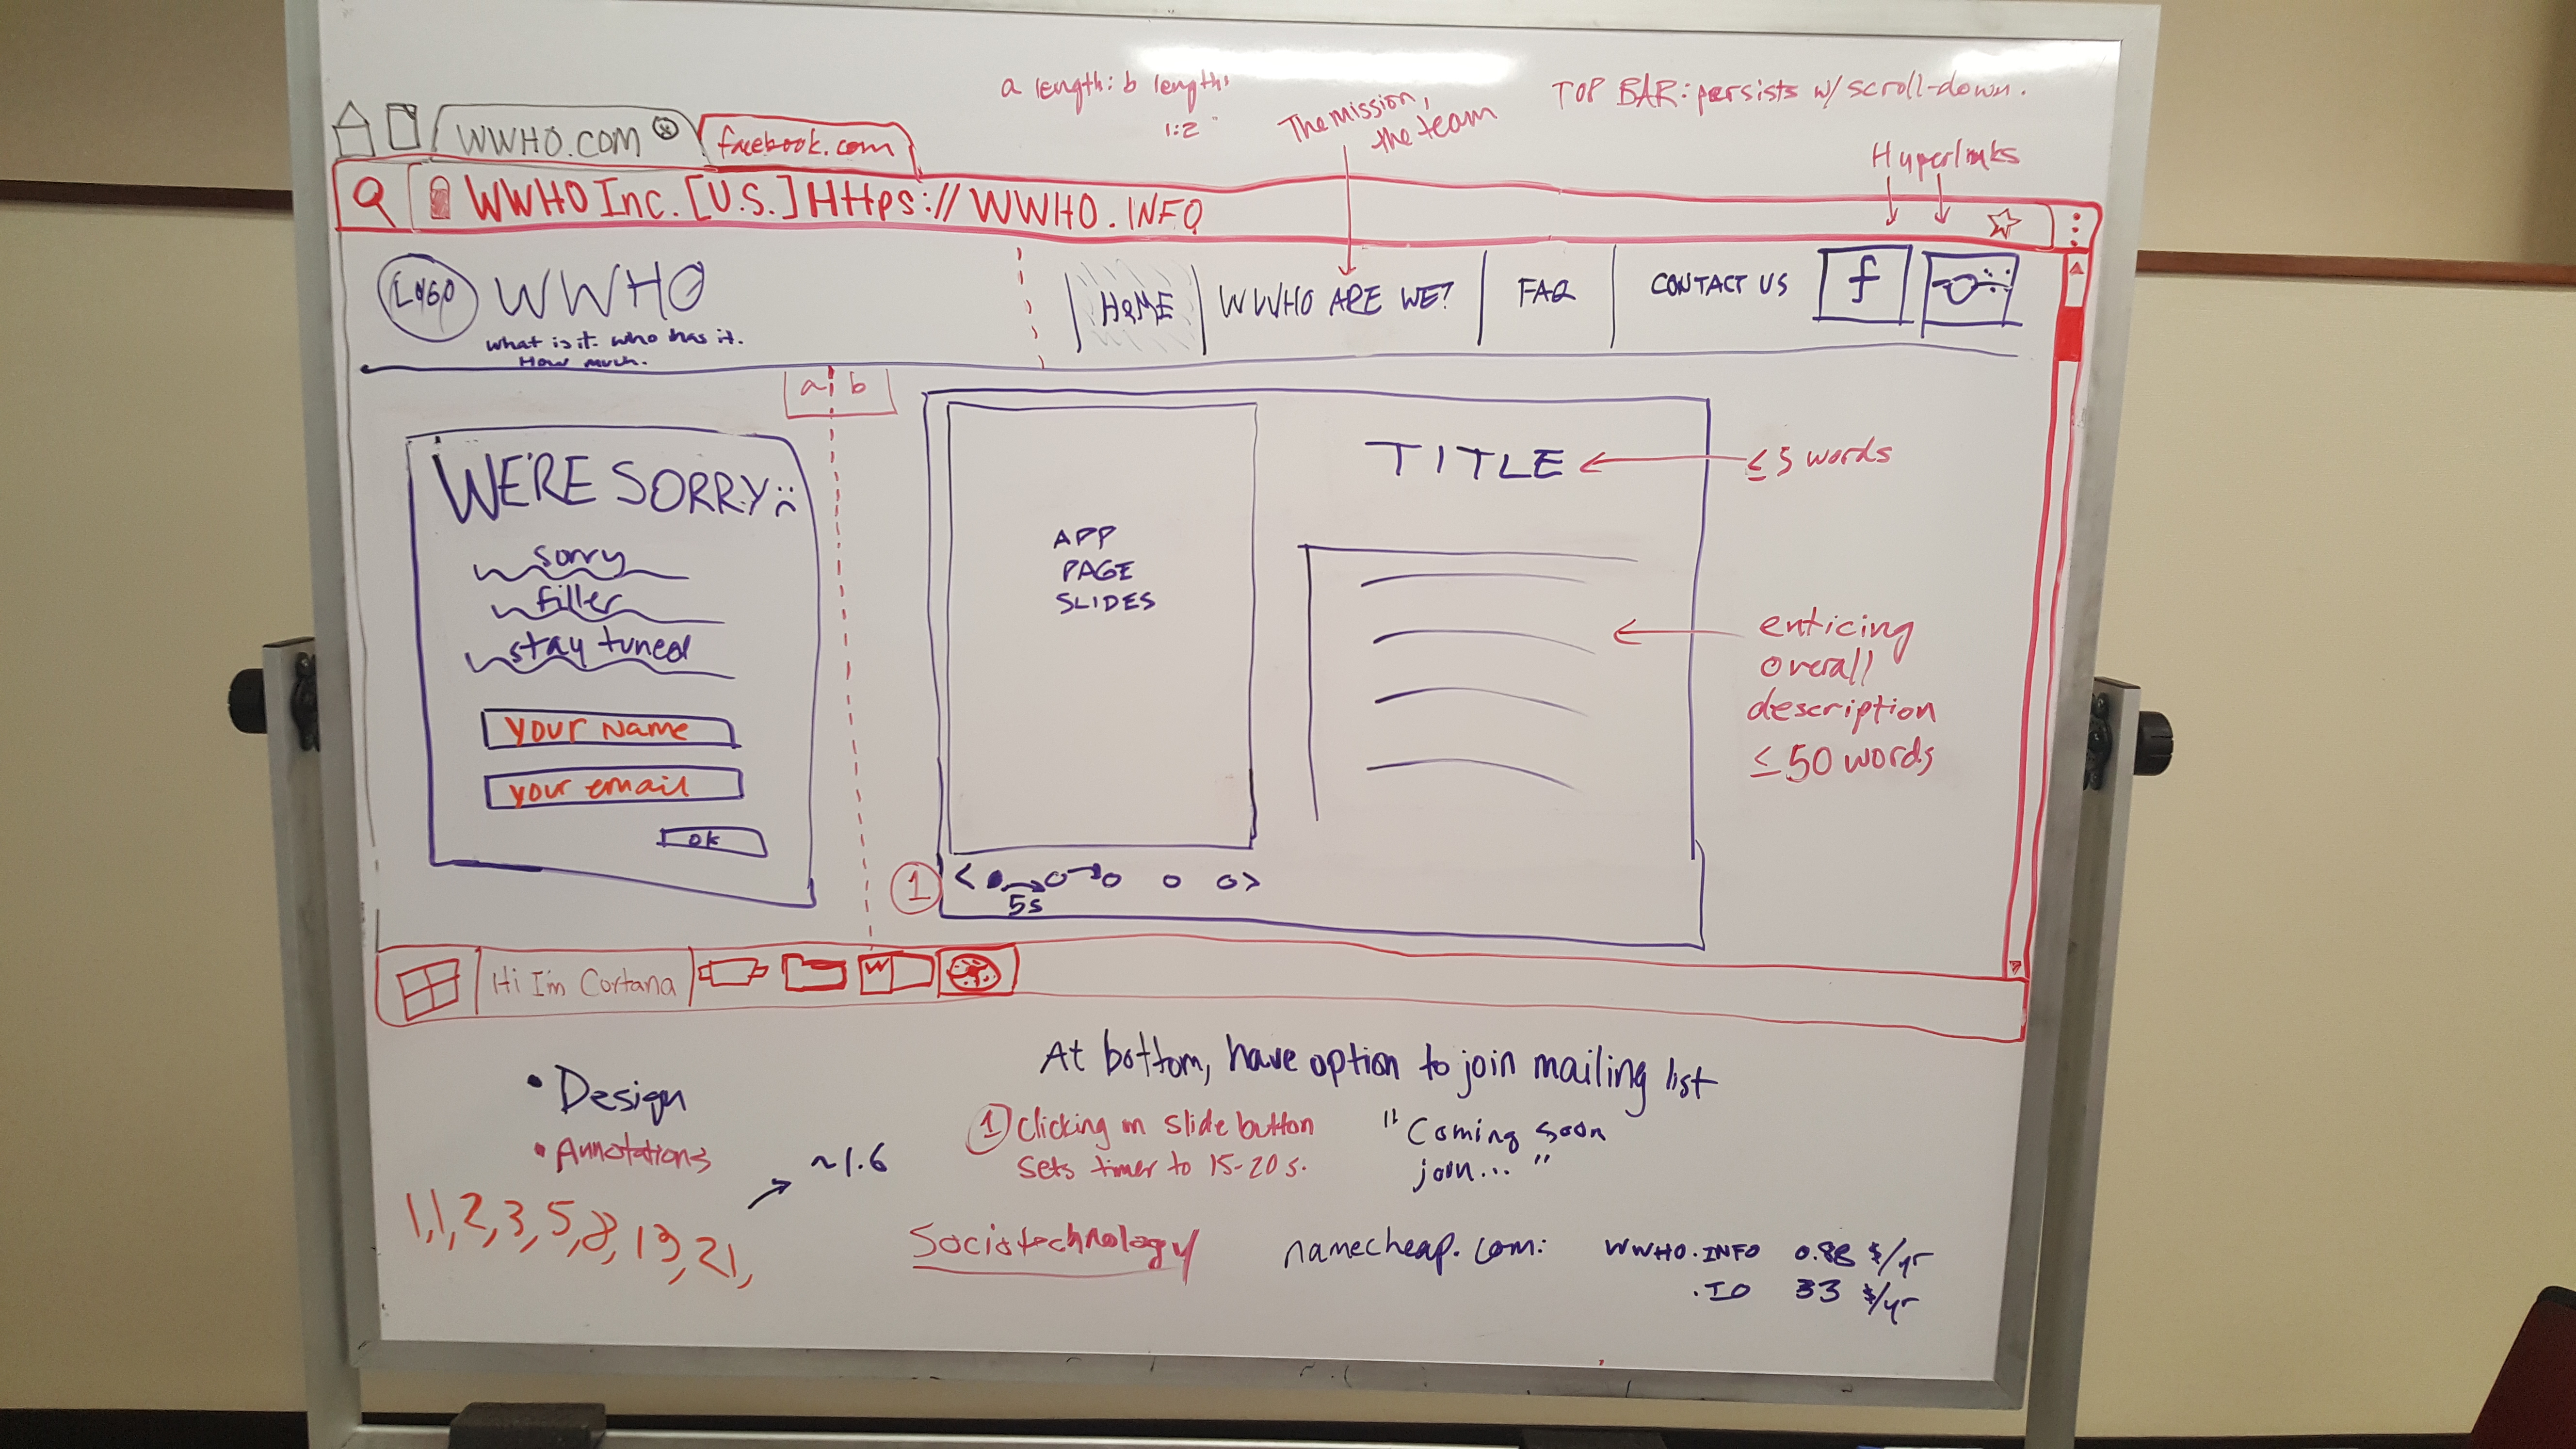 a length: b length:
1:2
The mission,
the team
TOP BAR: persists w/ scroll-down.
Hyperlinks
WWHO.COM
facebook.com
WWHO Inc. [U.S.] HTTps:// WWHO.INFO
Logo
WWHO
what is it. who has it.
How much.
HOME
WWHO ARE WE?
FAQ
CONTACT US
f
a b
WE'RE SORRY :(
sorry
filler
stay tuned
your name
your email
OK
APP
PAGE
SLIDES
TITLE
≤ 5 words
enticing
overall
description
≤ 50 words
1
< >
5s
Hi I'm Cortana
W
• Design
• Annotations
~1.6
1,1,2,3,5,8,13,21,
At bottom, have option to join mailing list
1 Clicking on slide button
sets timer to 15-20 s.
"Coming soon
join... "
Sociotechnology
namecheap.com:
WWHO.INFO 0.88 $/yr
.IO 33 $/yr